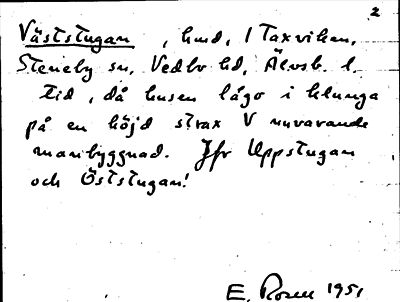 2
Väststugan, hmd, 1 Taxviken,
Steneby sn, Vedbo hd, Älvsb. l.
tid, då husen lågo i klunga
på en höjd strax V nuvarande
manbyggnad. Jfr Uppstugan
och Öststugan!
E. Rosen 1951